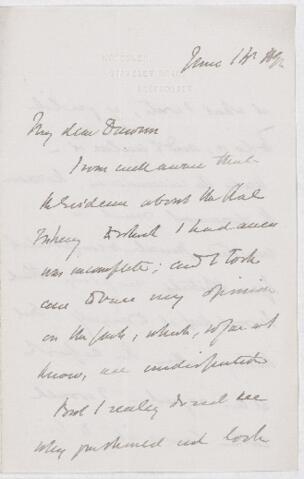 June 1st
My dear Dawson
I am well aware that
the Evidence about the Seal
Fishery to which I had access
was incomplete; and I took
care to base my opinion
on the facts, which, so far as I
know, are undisputed
But I really do not see
why you should not look